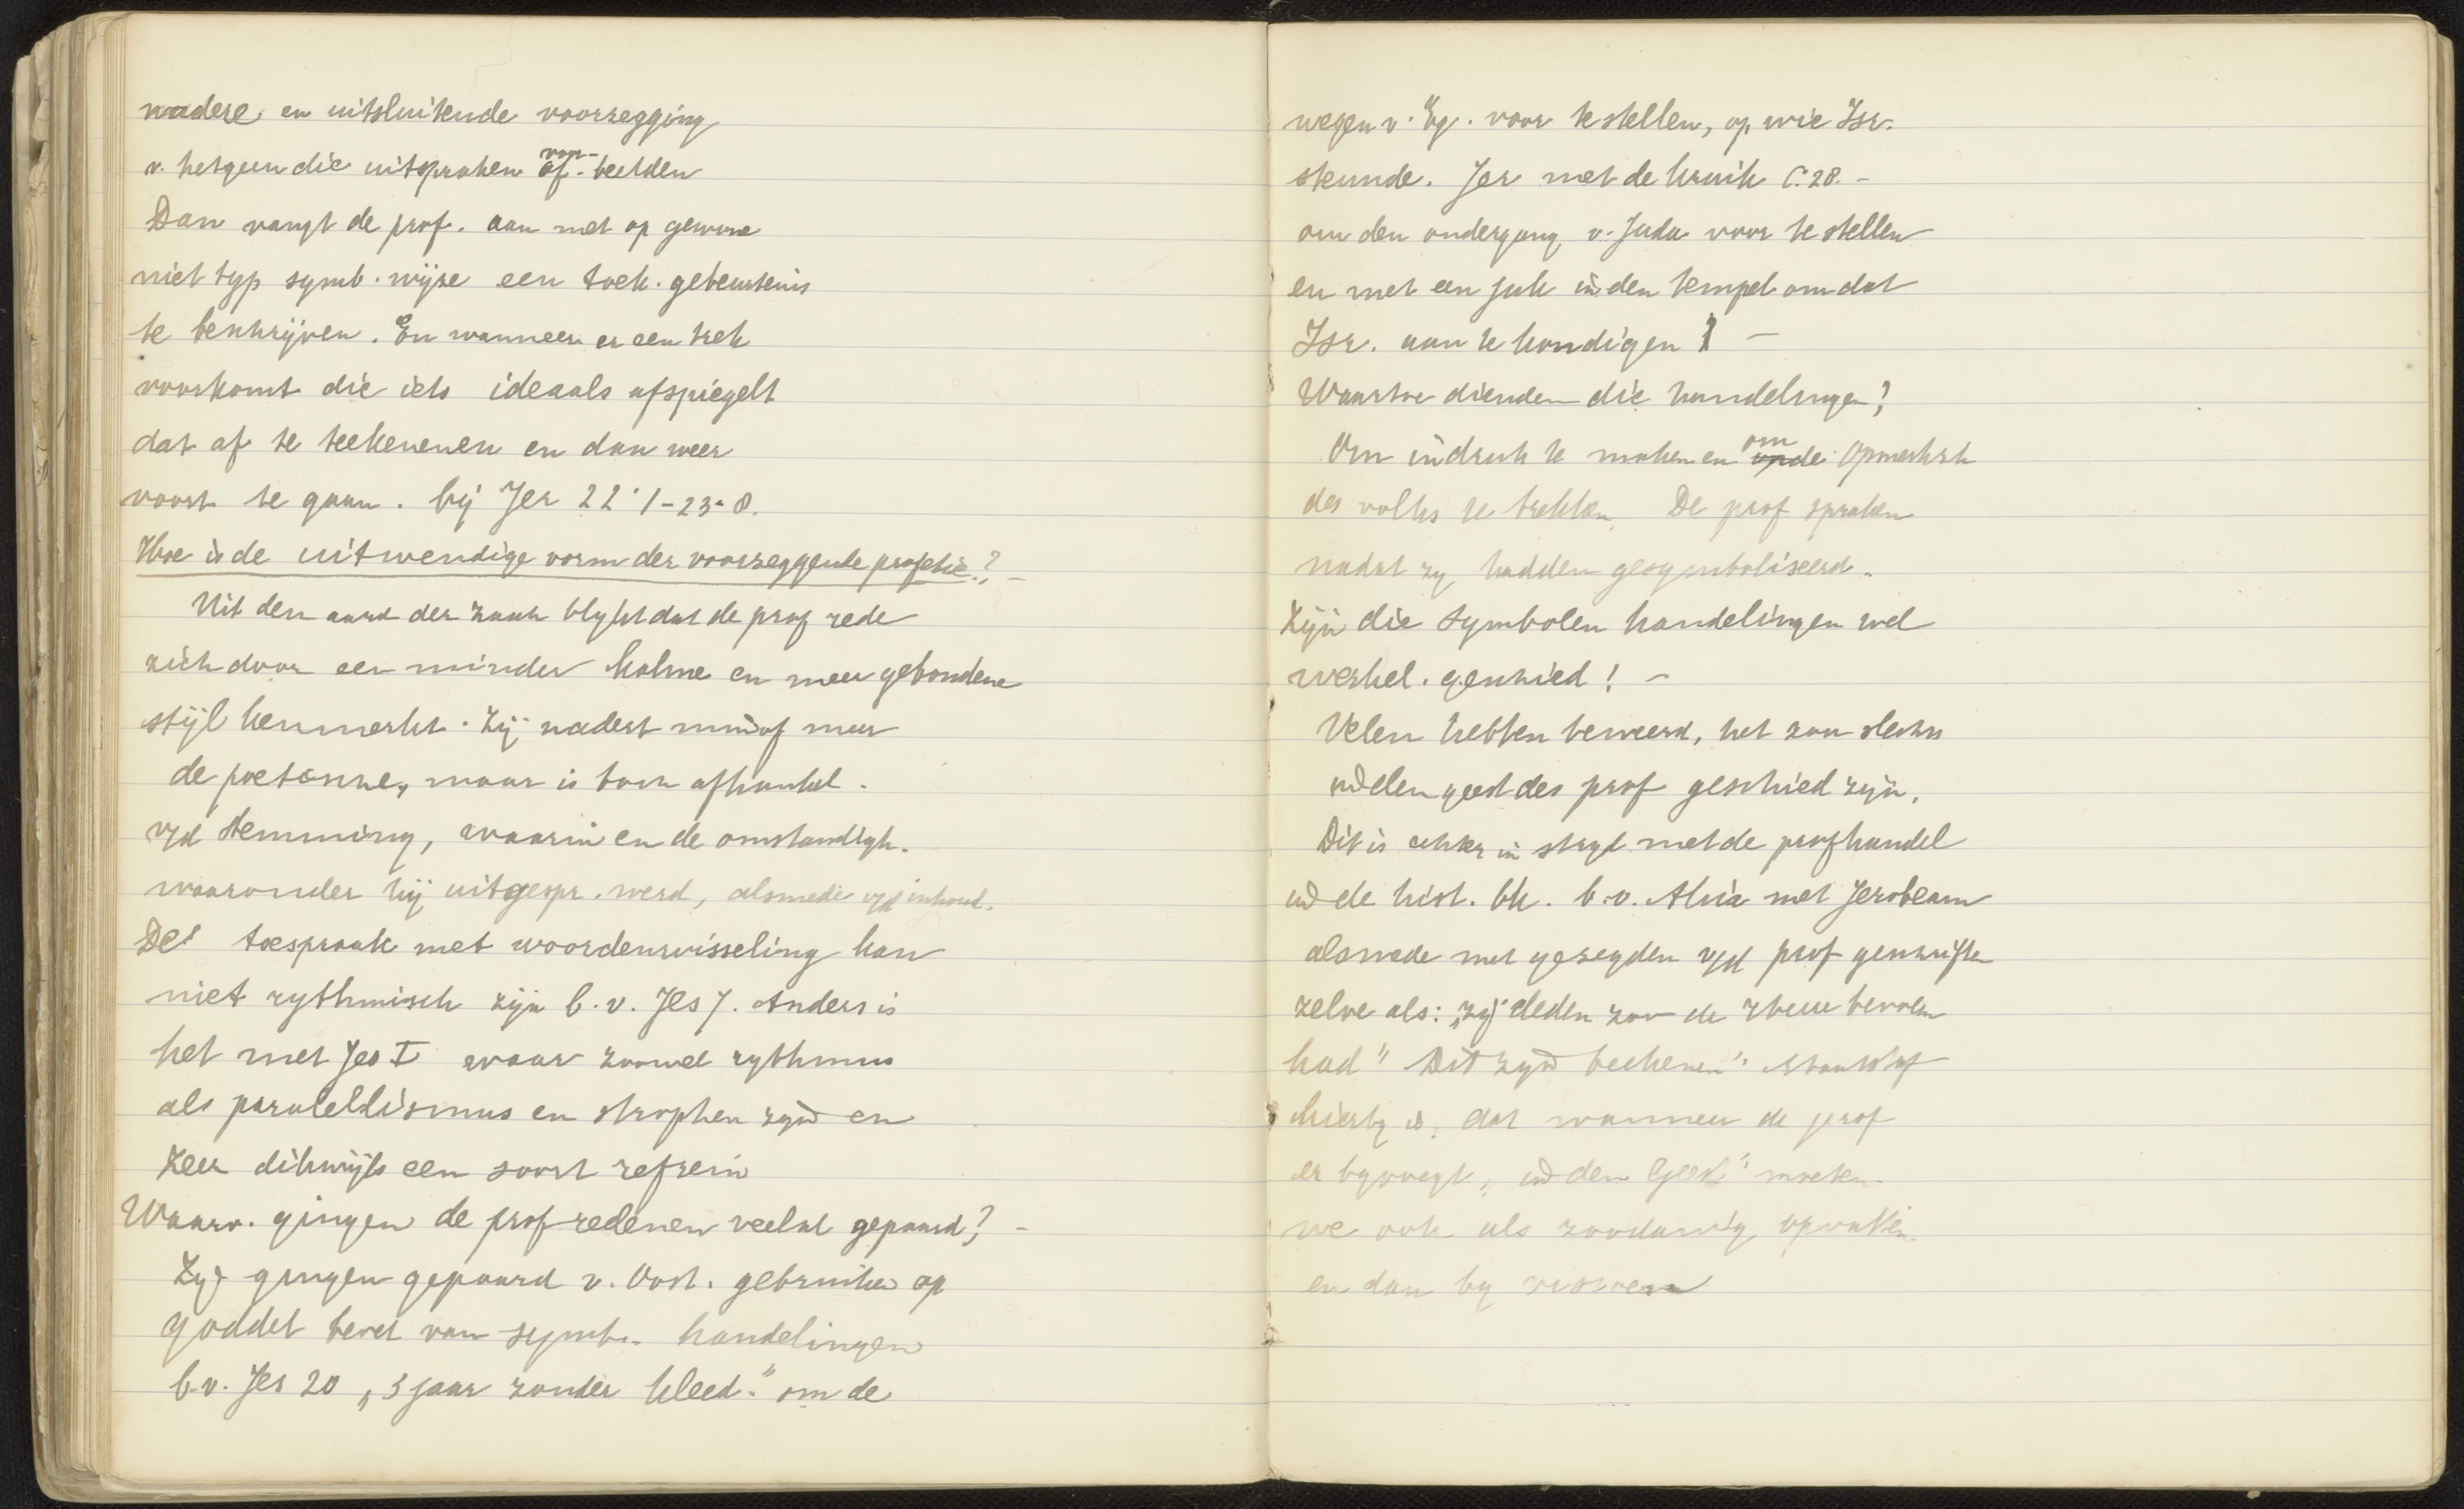 nadere en uitsluitende voorzegging
v. hetgeen die uitspraken van af-beelden
Dan vangt de prof. aan met op gewone
niet typ symb. wijze een toek. gebeurtenis
te beschrijven. En wanneer er een trek
voorkomt die iets ideaals afspiegelt
dat af te teekenenen en dan weer
voort te gaan. bij Jer 22:1-23:8.
Hoe is de uitwendige vorm der voorzeggende profetie? -
Uit den aard der zaak blykt dat de prof rede
zich door een minder kalme en meer gebondene
stijl kenmerkt. Zij nadert min of meer
de maar is toch afhankel.
vyd stemming, waarin en de omstandigh.
waaronder hij uitgespr. werd, alsmede vyd inhoud.
De toespraak met woordenwisseling kan
niet rythmisch zijn b.v. Jes 7. Anders is
het met Jes I waar zoowel rythmus
als paralellismus en strophen zyn en
zeer dikwijls een soort refrein
Waarv. gingen de prof redenen veelal gepaard? -
Zy gingen gepaard v. Oost. gebruiken op
goddel bevel van symb. handelingen
b.v. Jes 20 „3 jaar zonder kleed." om de
wegen v. Eg. voor te stellen, op wie Isr.
steunde. Jer met de kruik C. 28. -
om den ondergang v. Juda voor te stellen
en met een juk in den tempel om dat
Isr. aan te kondigen -
Waartoe dienden die handelingen?
Om indruk te maken en om de opmerksh
des volks te trekken. De prof spraken
nadat zy hadden gesymboliseerd.
Zijn die symbolen handelingen wel
werkel. geschied! -
Velen hebben beweerd, het zou slechts
in den geest des prof geschied zijn.
Dit is echter in stryd met de prof handel
in de hist. bk. b.v. Ahia met Jerobeam
alsmede met gezegden vyd prof geschriften
zelve als: „zij deden zoo de Heere bevolen
had" Dit zyn teekenen"
hierby is, dat wanneer de prof
er byvoegt, in den Geest" moeten
we ook als zoodanig opvatten
en dan by